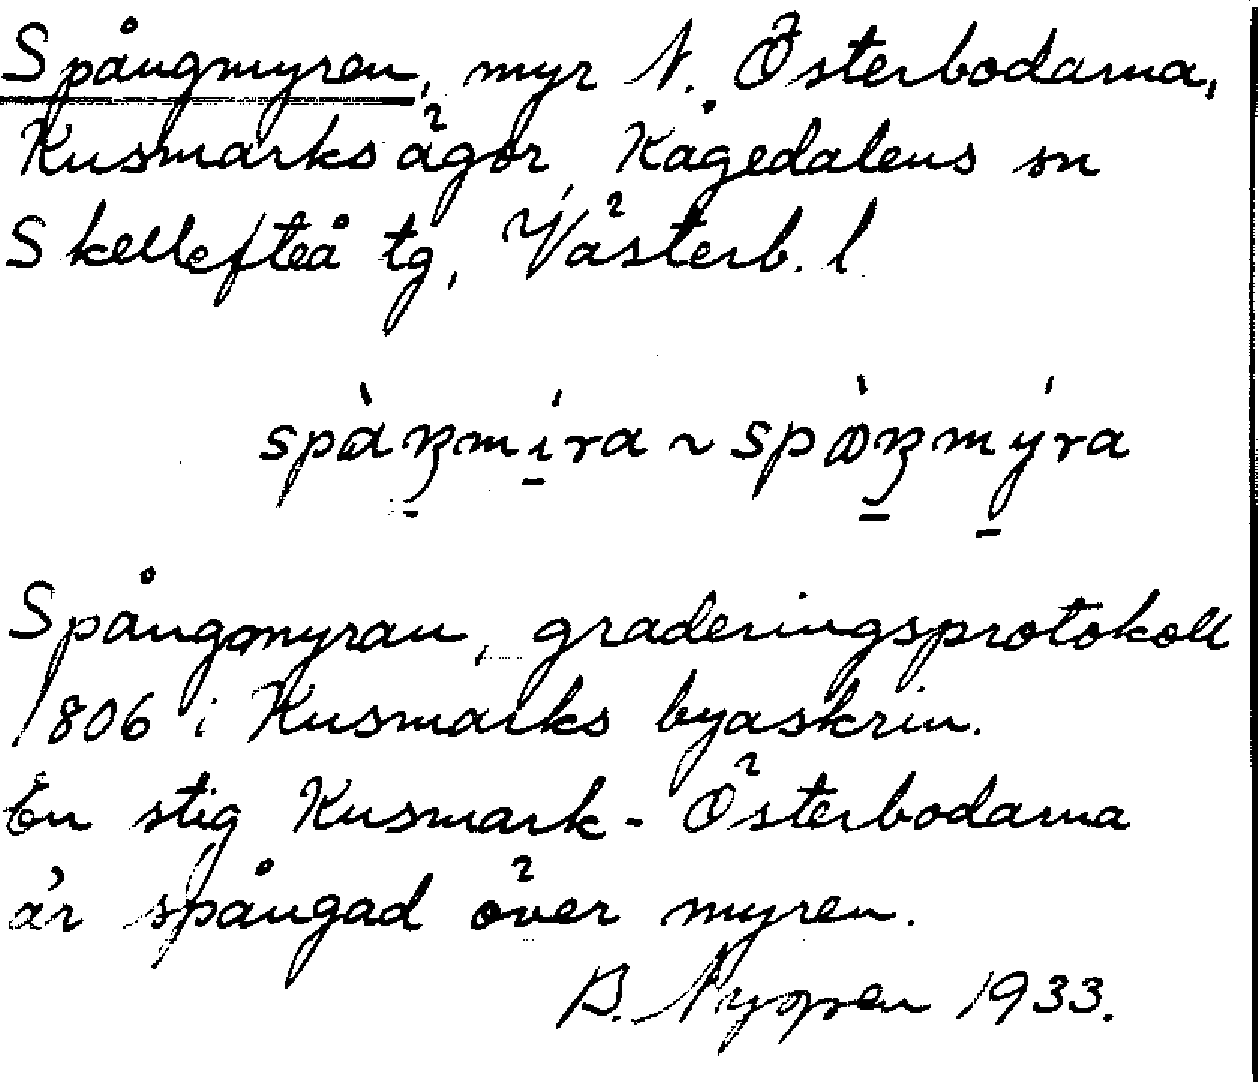 Spångmyren, myr N. Österbodarna,
Kusmarks ägor, Kågedalens sn
Skellefteå tg, Västerb. l.
spàŋmíra ~ spòŋmýra
Spångmyran, graderingsprotokoll
1806 i Kusmarks byaskrin.
En stig Kusmark - Österbodarna
är spångad över myren.
B. Nygren 1933.